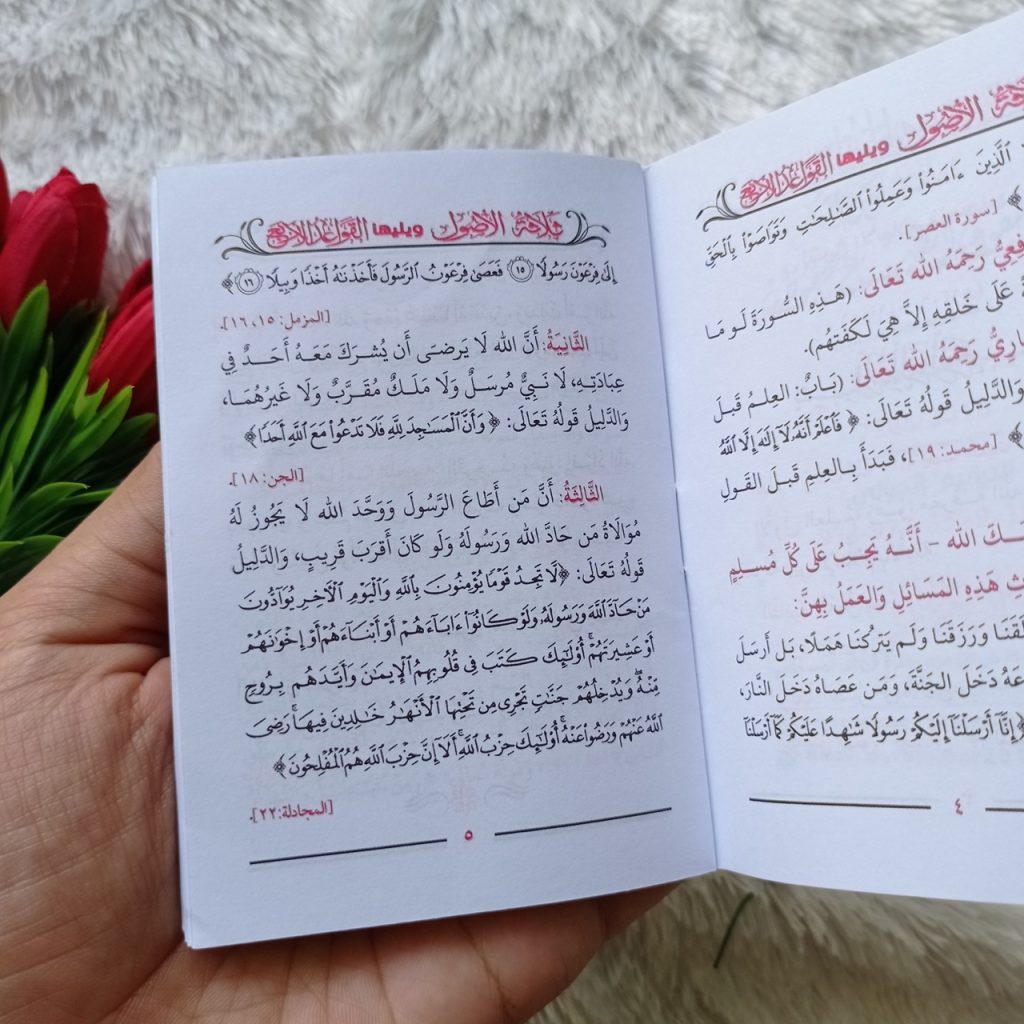 ثلاثة الأصول ويليها القواعد الأربع
الَّذِينَ ءَامَنُوا۟ وَعَمِلُوا۟ ٱلصَّـٰلِحَـٰتِ وَتَوَاصَوْا۟ بِٱلْحَقِّ
﴾ [سورة العصر].
رَحِمَهُ الله تَعَالَى: (هَذِهِ السُّورَةَ لَو مَا
عَلَى خَلقِهِ إِلاَّ هِيَ لَكَفَتْهُم).
رَحِمَهُ الله تَعَالَى: (بَابٌ: العِلمُ قَبلَ
وَالدَّلِيلُ قَولُهُ تَعَالَى: ﴿ فَٱعْلَمْ أَنَّهُۥ لَآ إِلَـٰهَ إِلَّا ٱللَّهُ
﴾ [محمد: ١٩]، فَبَدَأَ بِالعِلمِ قَبلَ القَولِ
الله - أَنَّهُ يَجِبُ عَلَى كُلِّ مُسلِمٍ
هَذِهِ المَسَائِلِ وَالعَمَلُ بِهِنَّ:
وَرَزَقَنَا وَلَم يَترُكنَا هَمَلًا، بَل أَرسَلَ
دَخَلَ الجَنَّةَ، وَمَن عَصَاهُ دَخَلَ النَّارَ،
﴿إِنَّآ أَرْسَلْنَآ إِلَيْكُمْ رَسُولًا شَـٰهِدًا عَلَيْكُمْ كَمَآ أَرْسَلْنَآ
٤
ثلاثة الأصول ويليها القواعد الأربع
إِلَىٰ فِرْعَوْنَ رَسُولًا ١٥ فَعَصَىٰ فِرْعَوْنُ ٱلرَّسُولَ فَأَخَذْنَـٰهُ أَخْذًا وَبِيلًا ١٦ ﴾
[المزمل: ١٥، ١٦].
الثَّانِيَةُ: أَنَّ الله لَا يَرضَى أَن يُشرَكَ مَعَهُ أَحَدٌ فِي
عِبَادَتِهِ، لَا نَبِيٌّ مُرسَلٌ وَلَا مَلَكٌ مُقَرَّبٌ وَلَا غَيرُهُمَا،
وَالدَّلِيلُ قَولُهُ تَعَالَى: ﴿ وَأَنَّ ٱلْمَسَـٰجِدَ لِلَّهِ فَلَا تَدْعُوا۟ مَعَ ٱللَّهِ أَحَدًا ﴾
[الجن: ١٨].
الثَّالِثَةُ: أَنَّ مَن أَطَاعَ الرَّسُولَ وَوَحَّدَ الله لَا يَجُوزُ لَهُ
مُوَالَاةُ مَن حَادَّ الله وَرَسُولَهُ وَلَو كَانَ أَقرَبَ قَرِيبٍ، وَالدَّلِيلُ
قَولُهُ تَعَالَى: ﴿لَّا تَجِدُ قَوْمًا يُؤْمِنُونَ بِٱللَّهِ وَٱلْيَوْمِ ٱلْـَٔاخِرِ يُوَآدُّونَ
مَنْ حَآدَّ ٱللَّهَ وَرَسُولَهُۥ وَلَوْ كَانُوٓا۟ ءَابَآءَهُمْ أَوْ أَبْنَآءَهُمْ أَوْ إِخْوَٰنَهُمْ
أَوْ عَشِيرَتَهُمْ ۚ أُو۟لَـٰٓئِكَ كَتَبَ فِى قُلُوبِهِمُ ٱلْإِيمَـٰنَ وَأَيَّدَهُم بِرُوحٍ
مِّنْهُ ۖ وَيُدْخِلُهُمْ جَنَّـٰتٍ تَجْرِى مِن تَحْتِهَا ٱلْأَنْهَـٰرُ خَـٰلِدِينَ فِيهَا ۚ رَضِىَ
ٱللَّهُ عَنْهُمْ وَرَضُوا۟ عَنْهُ ۚ أُو۟لَـٰٓئِكَ حِزْبُ ٱللَّهِ ۚ أَلَآ إِنَّ حِزْبَ ٱللَّهِ هُمُ ٱلْمُفْلِحُونَ ﴾
[المجادلة: ٢٢].
٥